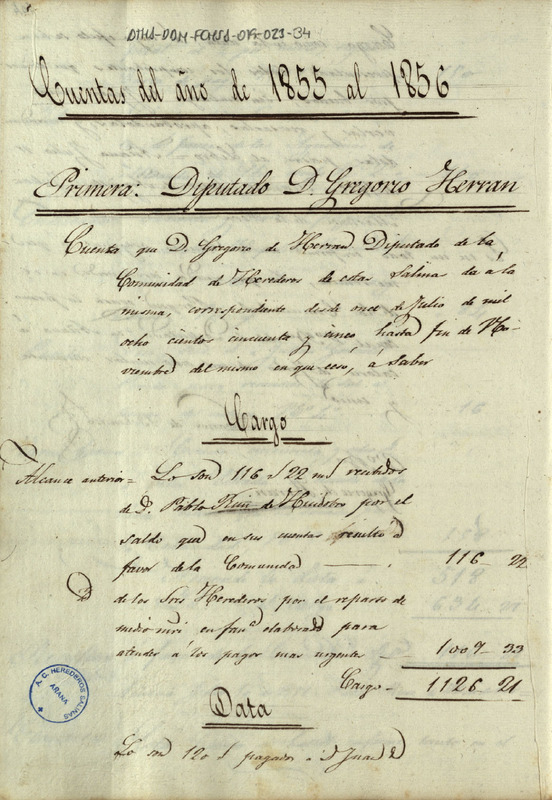 DTHS-DOM-FCHSA-017-023-34
Cuentas del año de 1855 al 1856
Primera: Diputado D. Gregorio Herran
Cuenta que D. Gregorio de Herran Diputado de la
Comunidad de Herederos de estas Salinas da á la
misma, correspondiente desde once de Julio de mil
ocho cientos cincuenta y cinco hasta fin de No-
viembre del mismo en que cesó, á saber
Cargo
Alcance anterior = Lo son 116 22 recibidos
de D. Pablo Ruiz de Huidobro por el
saldo que en sus cuentas resultó á
favor de la Comunidad 116 22
de los Sres Herederos por el reparto de
medio mri en fanª elaborada para
atender á los pagos mas urgentes 1009 23
Cargo 1126 21
A. C. HEREDEROS SALINAS
AÑANA
Data
Lo son 120 pagados á D Juan